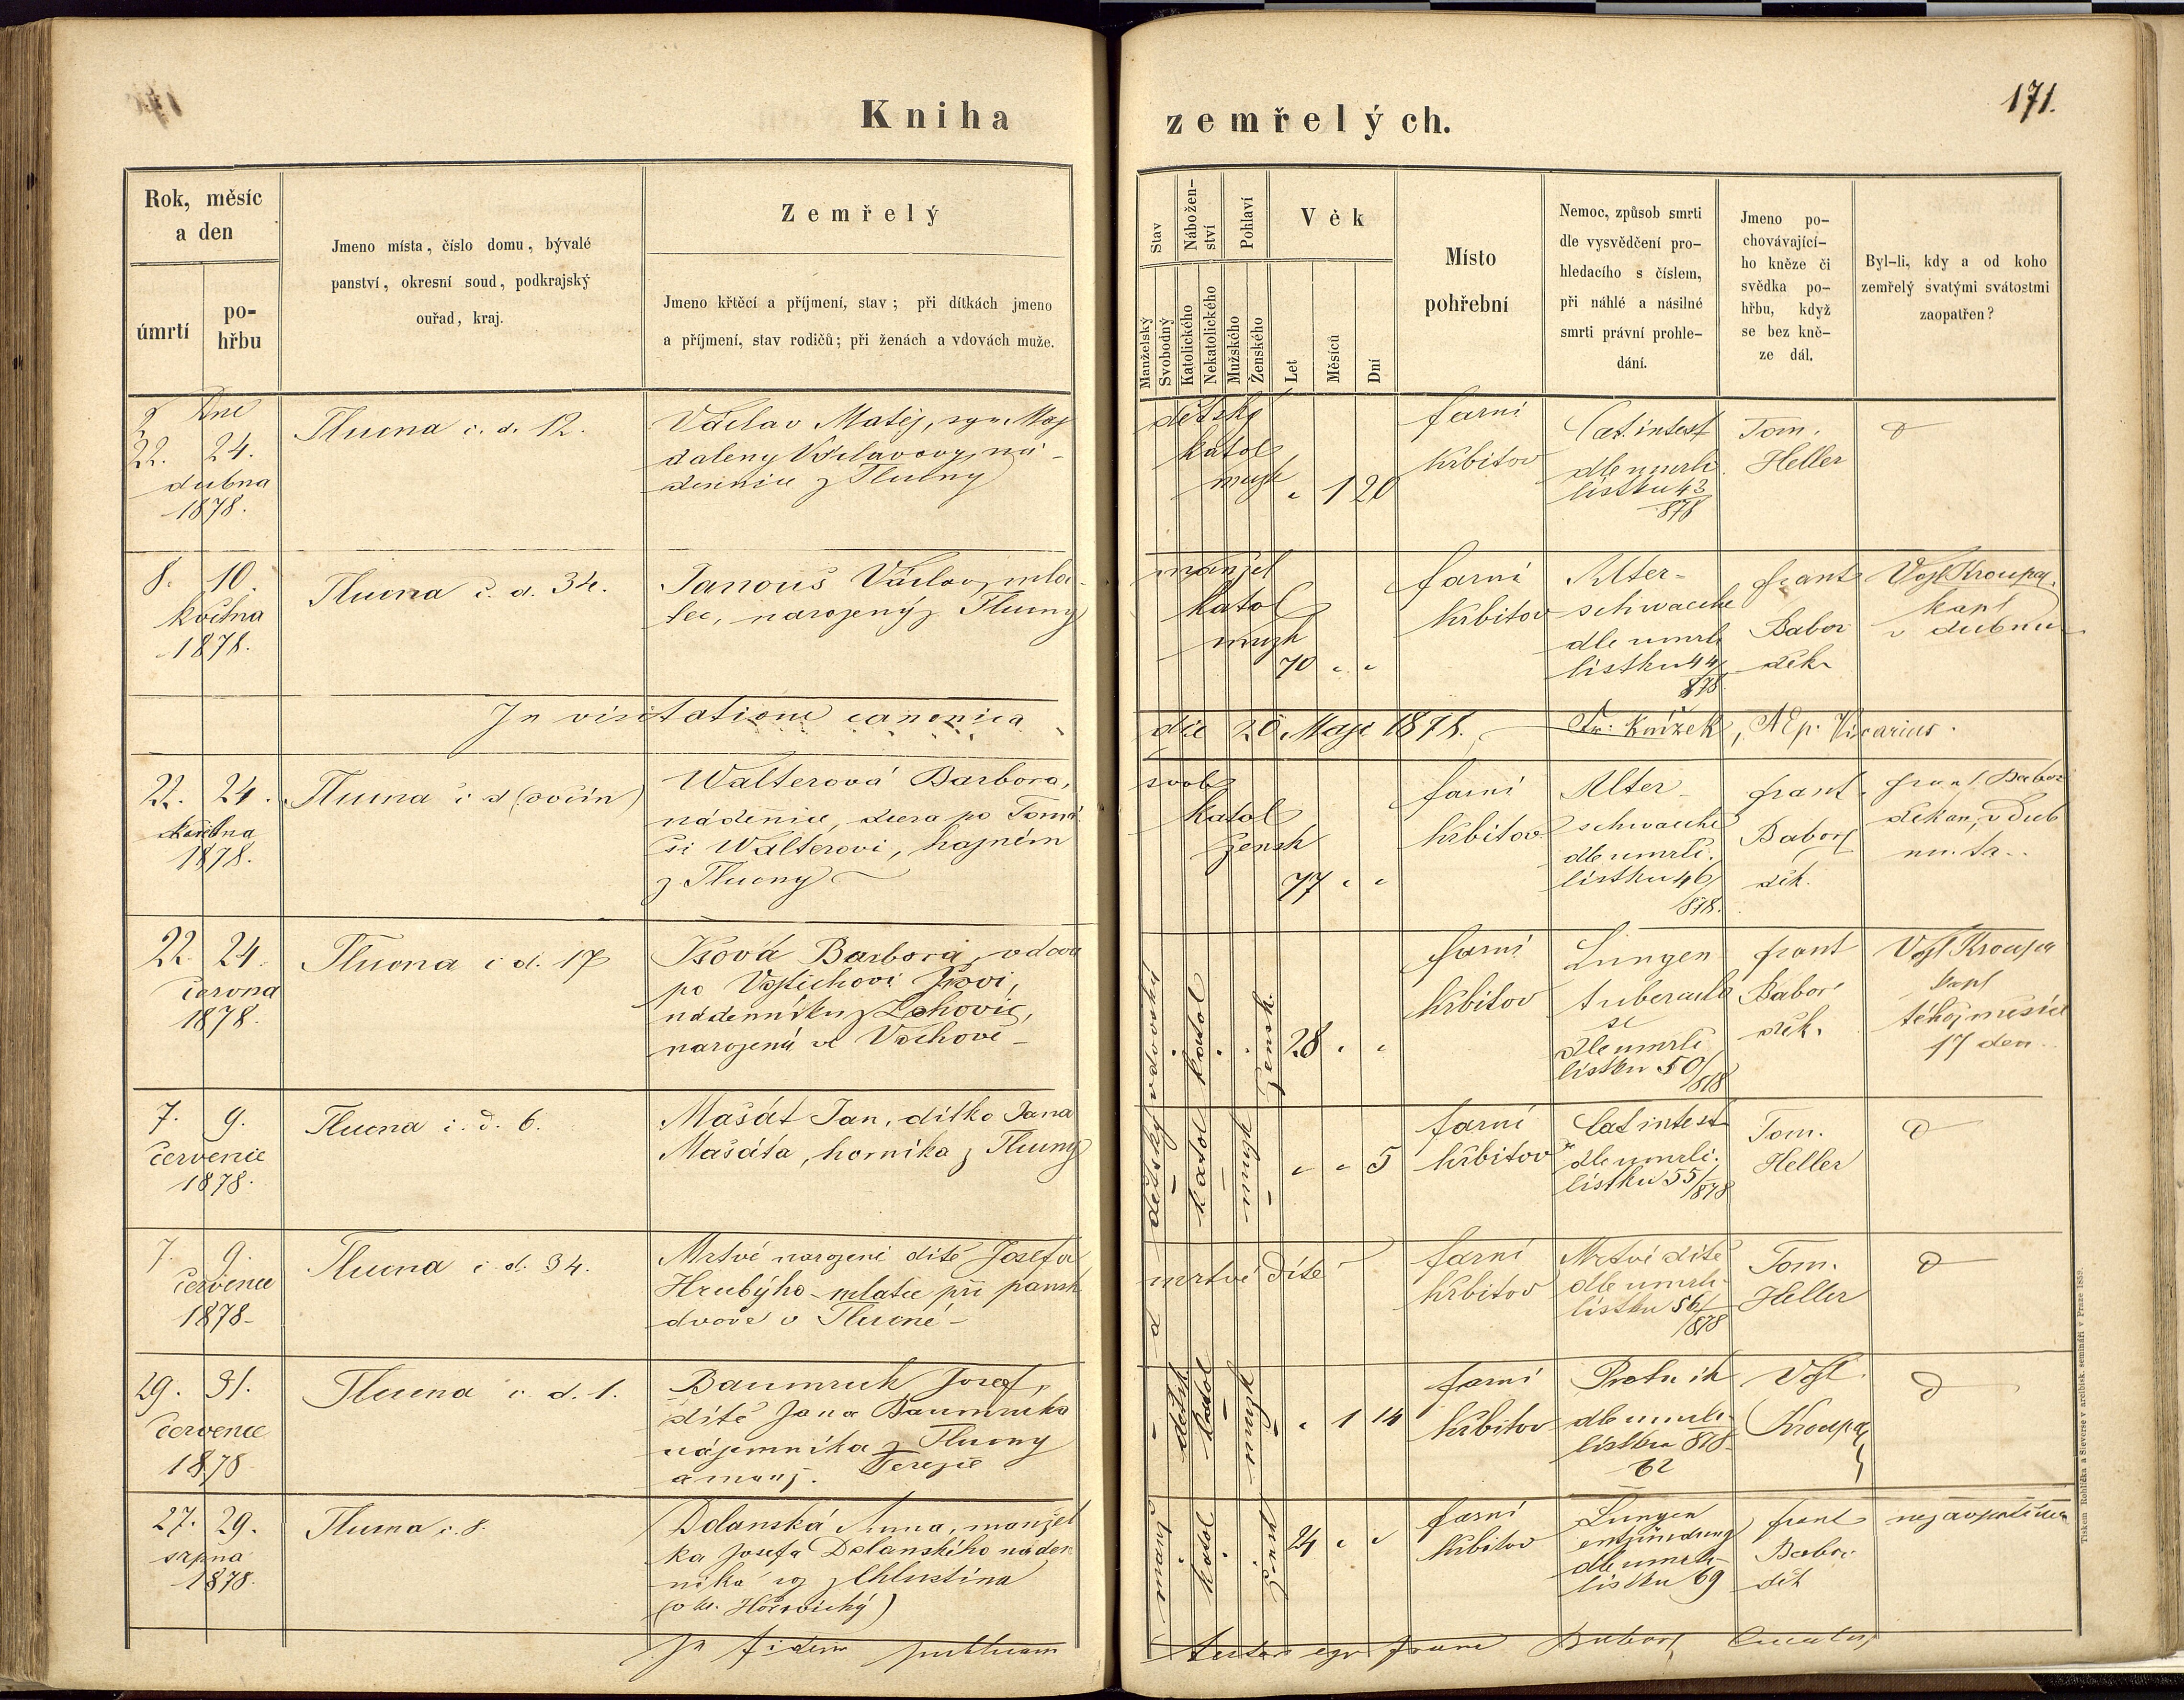 Kniha
zemřelých.
171.
Rok, měsíc
a den
úmrtí
po-
hřbu
Jmeno místa, číslo domu, bývalé
panství, okresní soud, podkrajský
ouřad, kraj.
Zemřelý
Jmeno křtěcí a příjmení, stav; při dítkách jmeno
a příjmení, stav rodičů; při ženách a vdovách muže.
Stav
Manželský
Svobodný
Nábožen-
ství
Katolického
Nekatolického
Pohlaví
Mužského
Ženského
Věk
Let
Měsíců
Dní
Místo
pohřební
Nemoc, způsob smrti
dle vysvědčení pro-
hledacího s číslem,
při náhlé a násilné
smrti právní prohle-
dání.
Jmeno po-
chovávající-
ho kněze či
svědka po-
hřbu, když
se bez kně-
ze dál.
Byl-li, kdy a od koho
zemřelý svatými svátostmi
zaopatřen?
Dne
22. 24.
dubna
1878.
Tlucna č. d. 12.
Václav Matěj, syn Mag
daleny Václavovy, ná-
denice z Tlucny
dětský
katol
mužk
1 20
farní
hřbitov
Cat. intest
dle umrlč.
lístku 43
878
Tom.
Heller
8. 10.
května
1878.
Tlucna č. d. 34.
Janouš Václav, mla-
tec, narozený z Tlucny
manžel
katol
mužk
70
farní
hřbitov
Alter-
schwaeche
dle umrlč
lístku 44/
878
frant
Babor
děk.
Vojt Kroupa
kapl
v dubnu
In visitatione canonica
die 20. Maji 1878.
Fr. Knížek, AEp. Vicarius.
22. 24.
května
1878.
Tlucna č d (ovčín)
Walterová Barbora,
nádenice, dcera po Tomá
ši Walterovi, hajném
z Tlucny
svob
katol
žensk
77
farní
hřbitov
Alter-
schwaeche
dle umrlč.
lístku 46/
878.
frant.
Babor
děk.
frant. Babor
děkan, v dub
nu. ta..
22. 24.
června
1878.
Tlucna č d. 17
Barbora, vdova
po Vojtěchovi
nádenníku z
narozená ve Vochově-
vdovský
katol
žensk.
28
farní
hřbitov
Lungen
tuberculo
se
dle umrlč
lístku 50/
878
frant
Babor
děk.
Vojt Kroupa
kapl
téhož měsíce
17 den
7. 9.
červenie
1878.
Tlucna č. d. 6.
Mašát Jan, dítko Jana
Mašáta, horníka z Tlucny
dětský
katol
mužk
5
farní
hřbitov
Cat intest
dle umrlč.
lístku 55/878
Tom.
Heller
7. 9.
července
1878-
Tlucna č d. 34.
Mrtvě narozené dítě Josefa
Hrubýho - mlatce při pansk
dvoře v Tlucné -
mrtvé dítě
farní
hřbitov
Mrtvé dítě
dle umrlč-
lístku 56/
/878
Tom.
Heller
29. 31.
července
1878
Tlucna č. d. 1.
Baumruk Josef,
dítě Jana Baumruka
nájemníka z Tlucny
a manž. Terezie
dětsk
katol
mužk
1 14
farní
hřbitov
dle umrlč-
lístku 878-
62
Vojt.
Kroupa
27. 29.
srpna
1878.
Tlucna č. 8.
Dolanská Anna, manžel
ka Josefa Dolanského náden
níka z Chlustina
(ok. Hořovický)
manž
katol
žensk
24
farní
hřbitov
Lungen
entzündung
dle umrlč-
lístku 69
frant
Babor
děk
nezaopatřena
In fidem publicam
testor ego Franc Babor, Curatus
Tiskem Rohlíčka a Sieverse v arcibisk. semináři v Praze 1859.